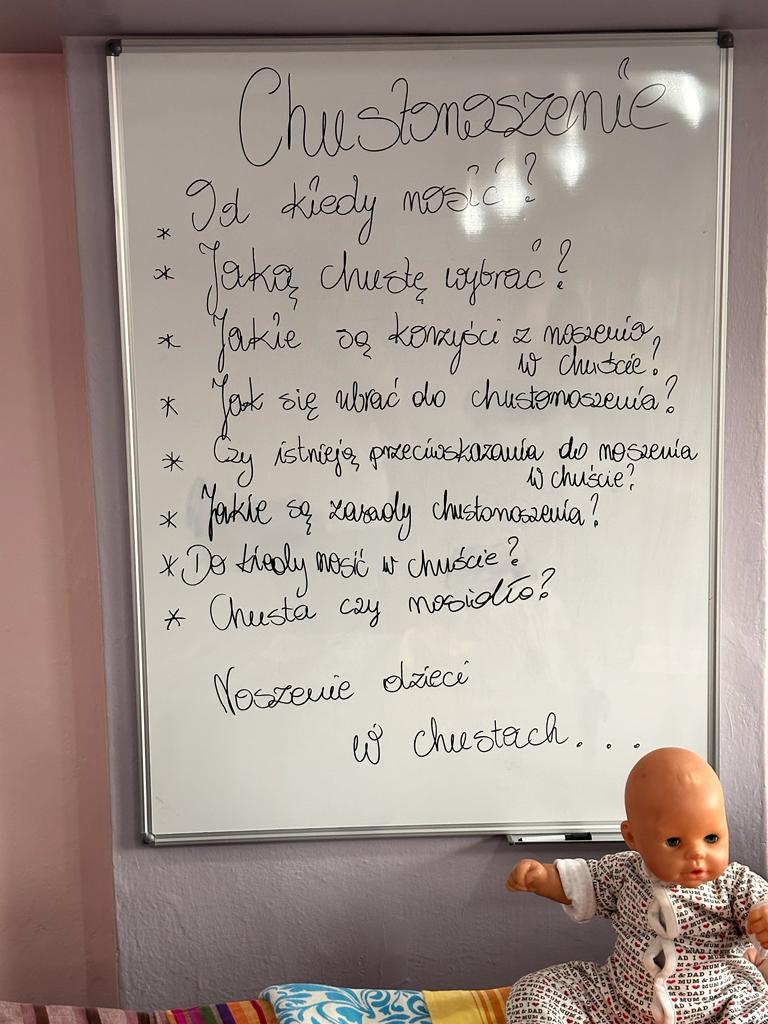 Chustonoszenie
* Od kiedy nosić?
* Jaką chustę wybrać?
* Jakie są korzyści z noszenia
w chuście?
* Jak się ubrać do chustonoszenia?
* Czy istnieją przeciwskazania do noszenia
w chuście?
* Jakie są zasady chustonoszenia?
* Do kiedy nosić w chuście?
* Chusta czy nosidło?
Noszenie dzieci
w chustach...